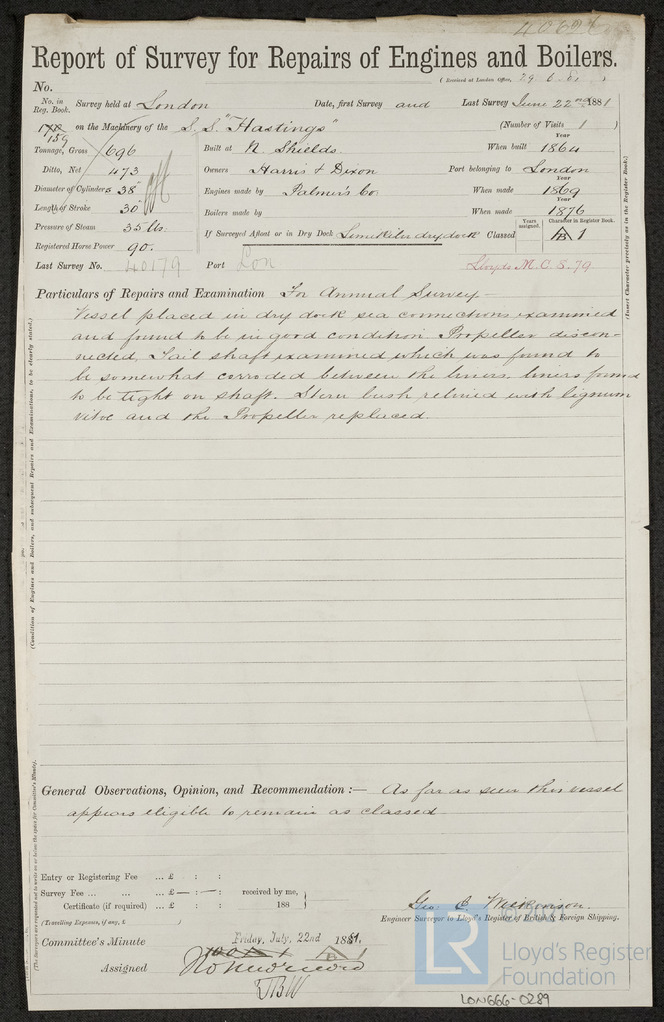 Report of Survey for Repairs of Engines and Boilers.
(Received at London Office, 29. 6. 81 )
No.
No. in Reg. Book. Survey held at London Date, first Survey and Last Survey June 22nd 1881
159 on the Machinery of the S.S. "Hastings" (Number of Visits 1 )
Tonnage, Gross 696 Built at N. Shields When built Year 1864
Ditto, Net 473 Owners Harris & Dixon Port belonging to London
Diameter of Cylinders 38 Engines made by Palmer's Co. When made Year 1869
Length of Stroke 30 Boilers made by When made Year 1876
Pressure of Steam 35 lbs. If Surveyed Afloat or in Dry Dock Limekiln dry dock Classed Years assigned. Character in Register Book. B 1
Registered Horse Power 90.
Last Survey No. 40179 Port Lon Lloyds M.C. 8.79
Particulars of Repairs and Examination For Annual Survey—
Vessel placed in dry dock sea connections examined
and found to be in good condition Propeller discon-
nected, Tail shaft examined which was found to
be somewhat corroded between the liners liners found
to be tight on shaft. Stern bush relined with lignum
vitæ and the Propeller replaced.
(Condition of Engines and Boilers, and subsequent Repairs and Examinations, to be clearly stated.)
(Insert Character precisely as in the Register Book.)
General Observations, Opinion, and Recommendation :— As far as seen this vessel
appears eligible to remain as classed
Entry or Registering Fee ... £ : :
Survey Fee ... ... ... £ — : — : received by me,
Certificate (if required) ... £ : : 188
(Travelling Expenses, if any, £ )
Engineer Surveyor to Lloyd's Register of British & Foreign Shipping.
Committee's Minute Friday, July, 22nd 1881.
Assigned
(The Surveyors are requested not to write on or below the space for Committee's Minute.)
LR
Lloyd's Register
Foundation
LON666-0289